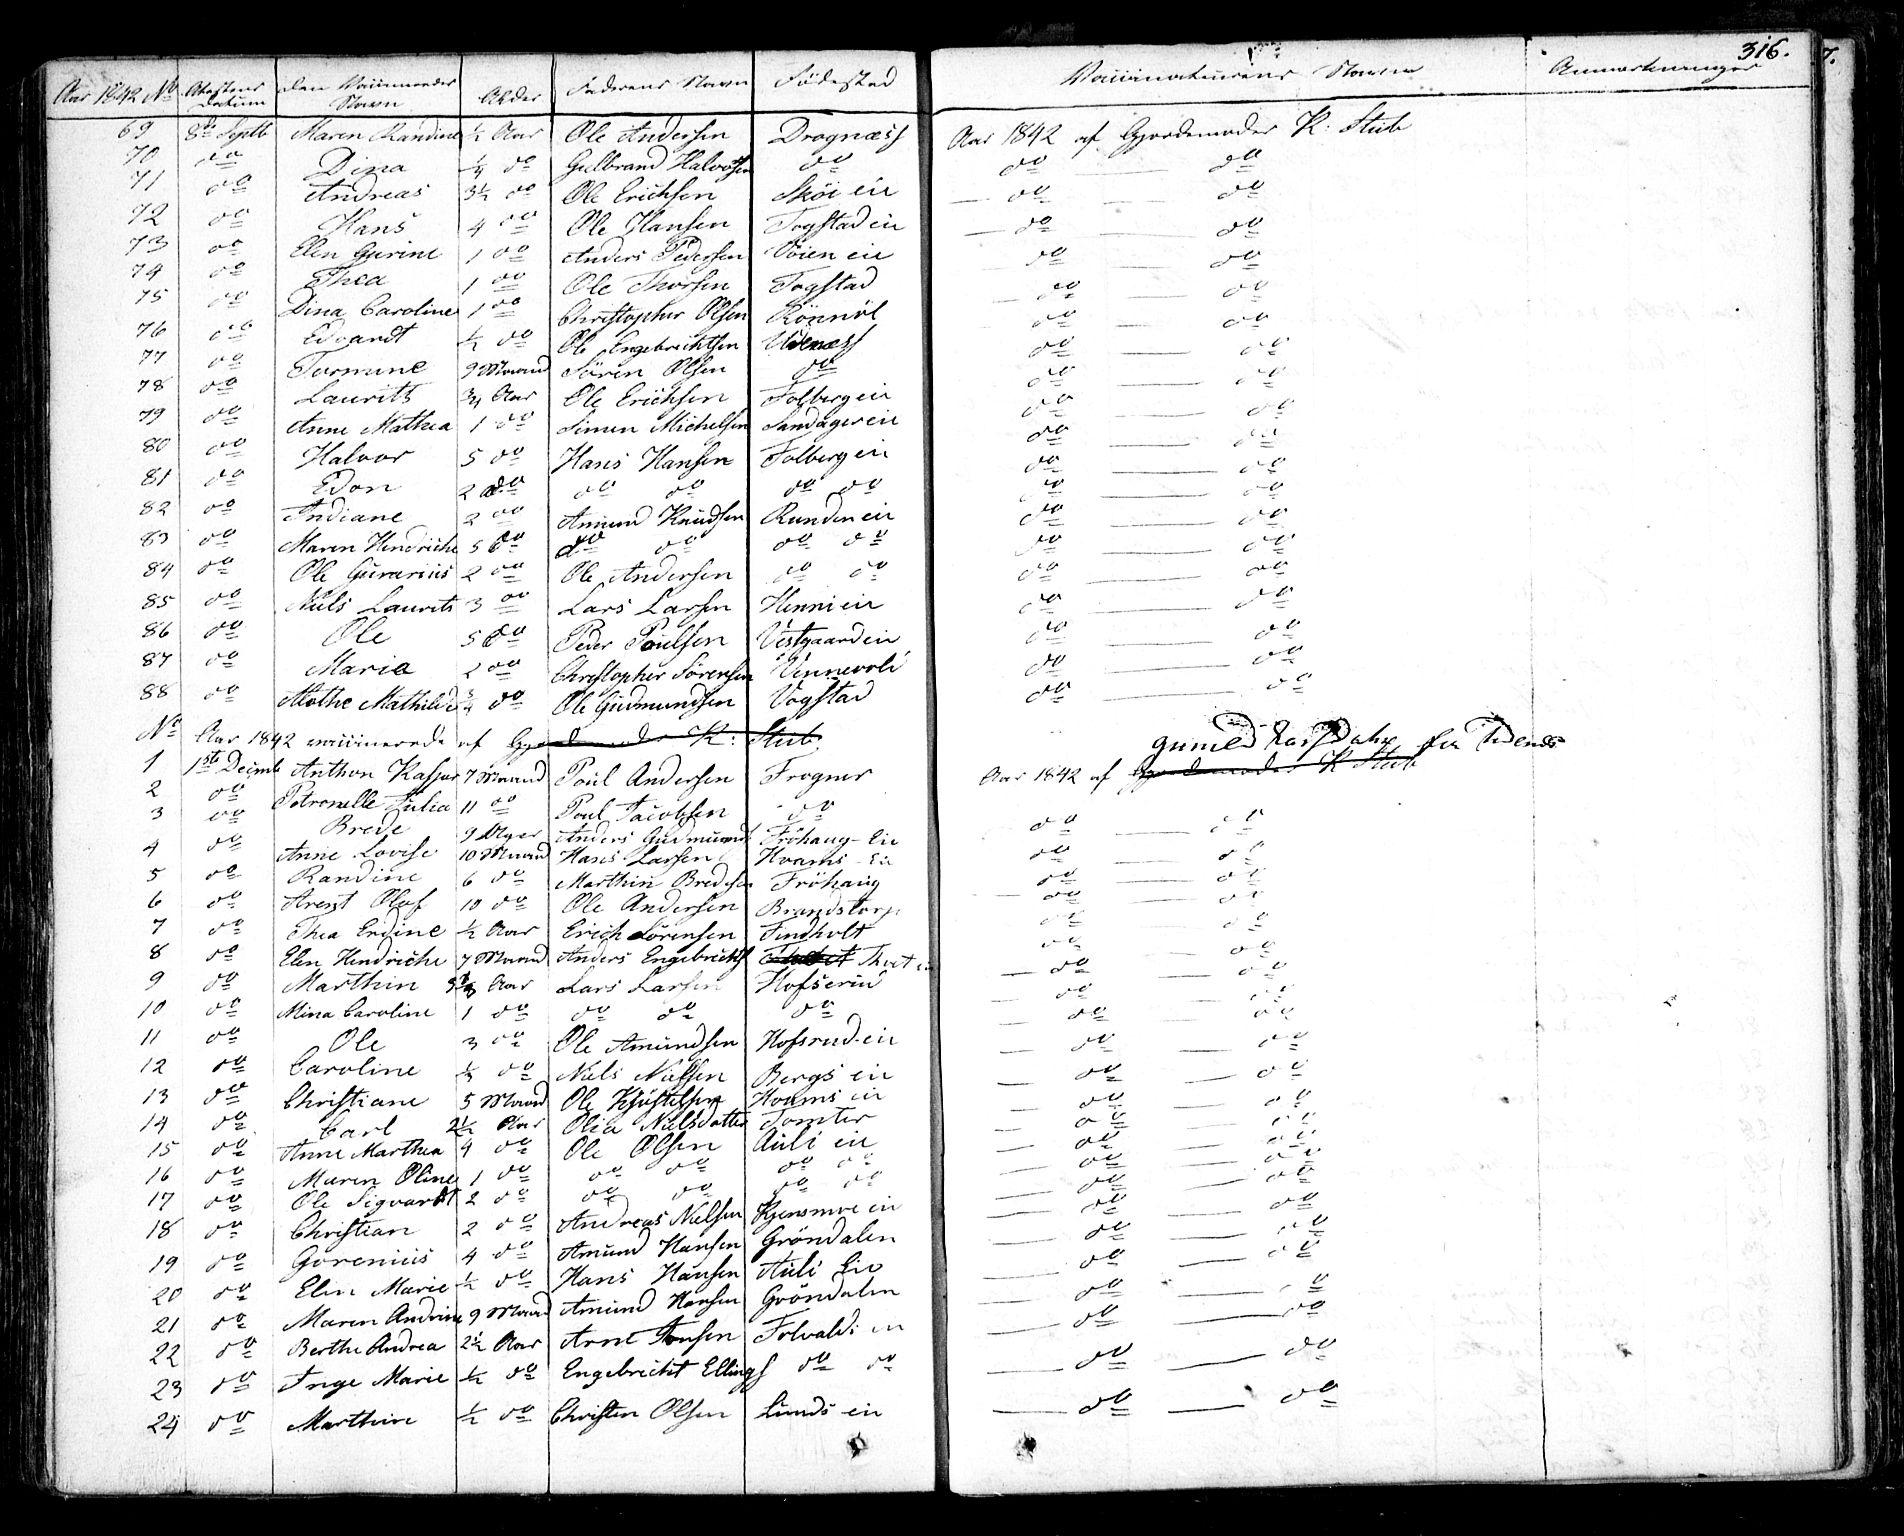 316.
Aar 1842 No Attestens Datum den Vaccineredes Navn Alder Faderens Navn Födested Vaccinateurens Navn Anmærkninger
69 8de Septb Maren Randine ½ Aar Ole Andersen Dragnæss Aar 1842 af Gjordemoder K: Stub
70 do Dina ¼ do Gulbrand Halvorsen do do do
71 do Andreas 3½ do Ole Erichsen Sköi eie do do
72 do Hans 4 do Ole Hansen Fogstad eie do do
73 do Elen Gurine 1 do Anders Pedersen Vöien eie do do
74 do Thea 1 do Ole Thorsen Fogstad do do
75 do Dina Caroline 1 do Christopher Olsen Rönnöl do do
76 do Edvardt ½ do Ole Engebrichtsen Udenæss do do
77 do Tormine 9 Maand Sören Olsen do do do
78 do Laurits ¾ Aar Ole Erichsen Folberg eie do do
79 do Anne Mathea 1 do Simen Michelsen Sandager eie do do
80 do Halvor 5 do Hans Hansen Folberg eie do do
81 do Edon 2 do do do do do do do
82 do Andiane 2 do Amund Knudsen Runden eie do do
83 do Maren Hendriche 5 do do do do do do do
84 do Ole Gunarius 2 do Ole Andersen do do do do
85 do Niels Laurits 3 do Lars Larsen Henni eie do do
86 do Ole 5 do Peder Poulsen Vestgaard eie do do
87 do Maria 2 do Christopher Sörensen Vinnevold do do
88 do Alothe Mathilde ¾ do Ole Gudmundsen Vogstad do do
No Aar 1842 vaccinerede af Gjordemoder K: Stub
1 1ste Decmb Anthon Kasper 7 Maand Poul Andersen Frogner Aar 1842 af Gjordemoder K Stub
2 do Petronelle Julia 11 do Poul Jacobsen do do do
3 do Brede 9 Uger Anders Gudmunds Fröhaug-Eie do do
4 do Anne Lovise 10 Maand Hans Larsen Hvams-Eie do do
5 do Randine 6 do Marthin Bredesen Fröhaug do do
6 do Arent Olaf 10 do Ole Andersen Brandstorp do do
7 do Thea Erdine ½ Aar Erich Sörensen Findholt do do
8 do Elen Hendriche 7 Maand Anders Engebrichts Thvet eie do do
9 do Marthin Aar Lars Larsen do do
10 do Mina Caroline 1 do do do do do do
11 do Ole 3 do Ole Amundsen Hofsrud-eie do do
12 do Caroline do Niels Nielsen Bergs eie do do
13 do Christiane 5 Maand Ole Kjöstelsen Hvams eie do do
14 do Carl 2½ Aar Olia Nielsdatter Tomter do do
15 do Anne Marthea 4 do Ole Olsen Auli eie do do
16 do Maren Oline 1 do do do do do do do
17 do Ole Sigvardt 2 do do do do do do do
18 do Christian 2 do Andreas Nielsen eie do do
19 do Gorenius 4 do Amund Hansen Gröndalen do do
20 do Elen Marie ½ do Hans Hansen Auli Eie do do
21 do Maren Andrine 9 Maand Amund Hansen Gröndalen do do
22 do Berthe Andrea 2½ Aar Arne Jensen eie do do
23 do Inge Marie ½ do Engebricht Ellings do do do do
24 do Marthine ½ do Christen Olsen Lunds eie do do